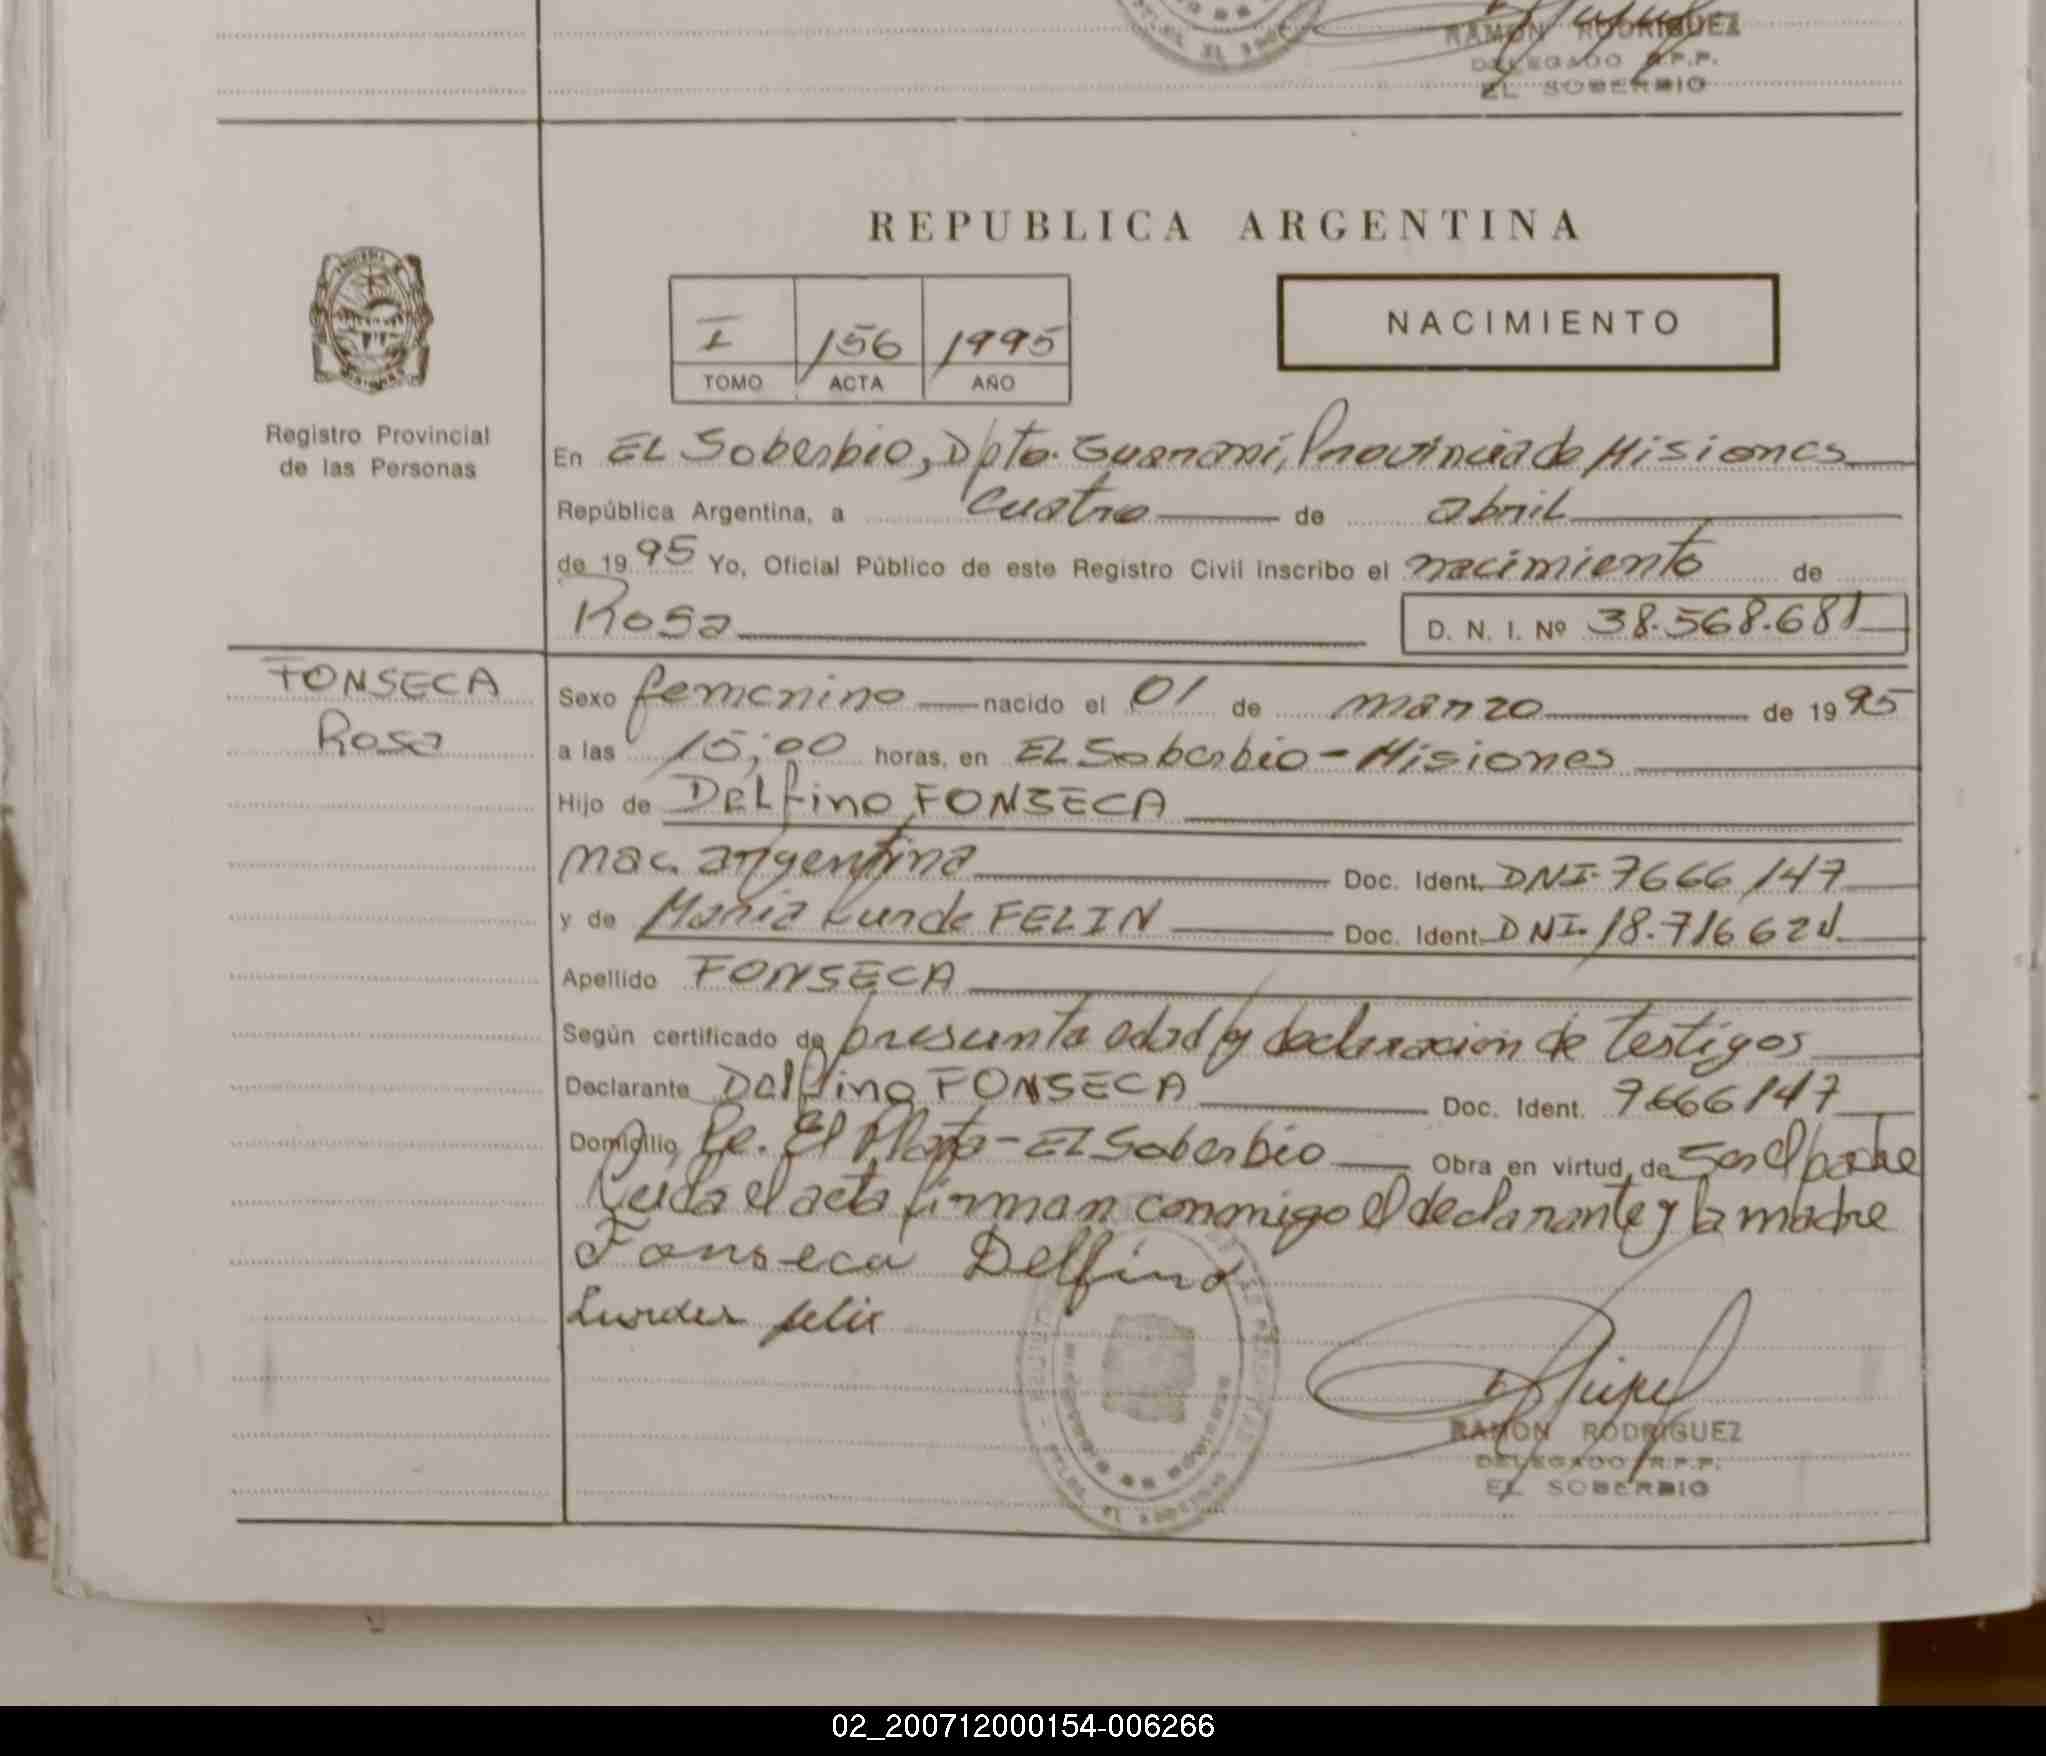 RAMON RODRIGUEZ
DELEGADO R.P.P.
EL SOBERBIO
REPUBLICA ARGENTINA
I 156 1995
TOMO ACTA AÑO
NACIMIENTO
Registro Provincial
de las Personas
En EL Soberbio, Dpto. Guaraní, Provincia de Misiones
República Argentina, a cuatro de abril
de 19 95 Yo, Oficial Público de este Registro Civil inscribo el nacimiento de
Rosa D. N. I. Nº 38.568.681
FONSECA
Rosa
Sexo femenino nacido el 01 de marzo de 19 95
a las 15;00 horas, en EL Soberbio - Misiones
Hijo de Delfino FONSECA
nac. argentina Doc. Ident. DNI. 7666147
y de Maria Lurde FELIN Doc. Ident. DNI. 18.716621
Apellido FONSECA
Según certificado de presunta edad y declaracion de testigos
Declarante Delfino FONSECA Doc. Ident. 7666147
Domicilio Pe. El Plata - EL Soberbio Obra en virtud de ser el padre
Leida el acta firman conmigo el declarante y la madre
Fonseca Delfino
Lurdes
RAMON RODRIGUEZ
DELEGADO R.P.P.
EL SOBERBIO
02_200712000154-006266